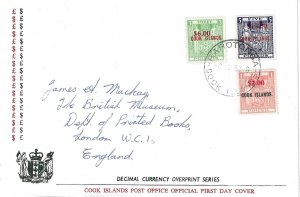 $6.00
COOK ISLANDS
RAROTONGA
COOK IS
$3.00
COOK ISLANDS
James A. Mackay
The British Museum,
Dept of Printed Books,
London W.C.1.
England.
DECIMAL CURRENCY OVERPRINT SERIES
COOK ISLANDS POST OFFICE OFFICIAL FIRST DAY COVER